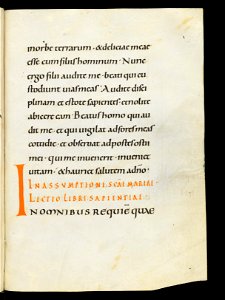 inorbe terrarum · & deliciae meae
esse cum filiis hominum · Nunc
ergo filii audite me · beati qui cu
stodiunt uias meas · Audite disci
plinam et estote sapientes et nolite
abicere eam · Beatus homo qui au
dit me · et qui uigilat ad fores meas
cotidie · et obseruat ad postes osti
mei · qui me inuenerit inueniet
uitam · & hauriet salutem a dño ·
IN ASSVMPTIONE SCAE MARIAE ·
LECTIO LIBRI SAPIENTIAE
IN OMNIBUS REQUIĒ QUAE